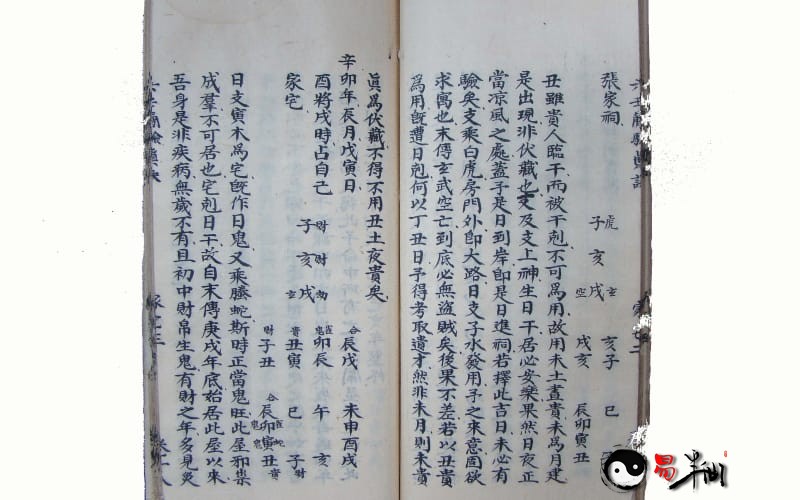 張家祠
虎 玄
子亥戌 亥子 巳
空 戌亥 辰卯寅丑
丑雖貴人臨干而被干剋不可為用故用未土晝貴未為月建
是出現非伏藏也支及支上神生日干居必安樂果然日夜正
當凉風之處蓋子是日到岸即是日進祠若擇此吉日未必有
驗矣支乘白虎房門外即大路日支子水發用予之來意固欲
求寓也末傳玄武空亡到底必無盜賊矣後果不差若以丑貴
為用既遭日剋何以丁丑日予得考取遺才然非未月則未貴
真為伏藏不得不用丑土夜貴矣
辛卯年辰月戊寅日
酉將戌時占自己
家宅
財 財
子亥戌
玄
合
辰戌 未申酉戌
卯辰 午 亥
貴
丑寅 巳 子
財
子丑 辰卯寅丑
日支寅木為宅既作日鬼又乘螣蛇斯時正當鬼旺此屋邪祟
成羣不可居也宅剋日干故自末傳庚戌年底始居此屋以來
吾身是非疾病無歲不有且初中財帛生鬼有財之年多見災
易半仙